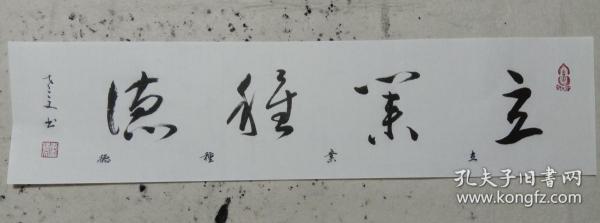 立业种德
立 業 種 德
书
孔夫子旧书网
www.kongfz.com